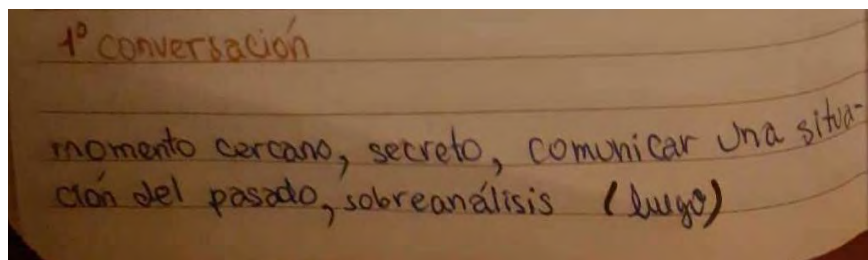 1º conversación
momento cercano, secreto, comunicar una situa-
ción del pasado, sobreanálisis (luego)